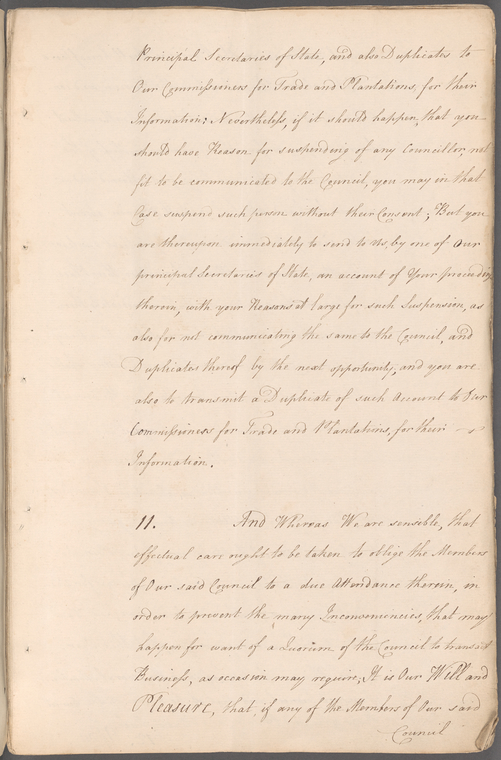 Principal Secretaries of State, and also Duplicates to
Our Commissioners for Trade and Plantations, for their
Information: Nevertheless, if it should happen, that you
should have Reason for suspending of any Councillor, not
fit to be communicated to the Council, you may in that
Case suspend such person without their Consent; But you
are thereupon immediately to send to Us, by one of Our
principal Secretaries of State, an account of Your proceeding
therein, with your Reasons at large for such Suspension, as
also for not communicating the same to the Council, and
Duplicates thereof by the next opportunity, and you are
also to transmit a Duplicate of such Account to Our
Commissioners for Trade and Plantations, for their
Information.
11. And Whereas We are sensible, that
effectual care ought to be taken to oblige the Members
of Our said Council to a due Attendance therein, in
order to prevent the many Inconveniencies, that may
happen for want of a Quorum of the Council to transact
Business, as occasion may require, It is Our Will and
Pleasure, that, if any of the Members of Our said
Council